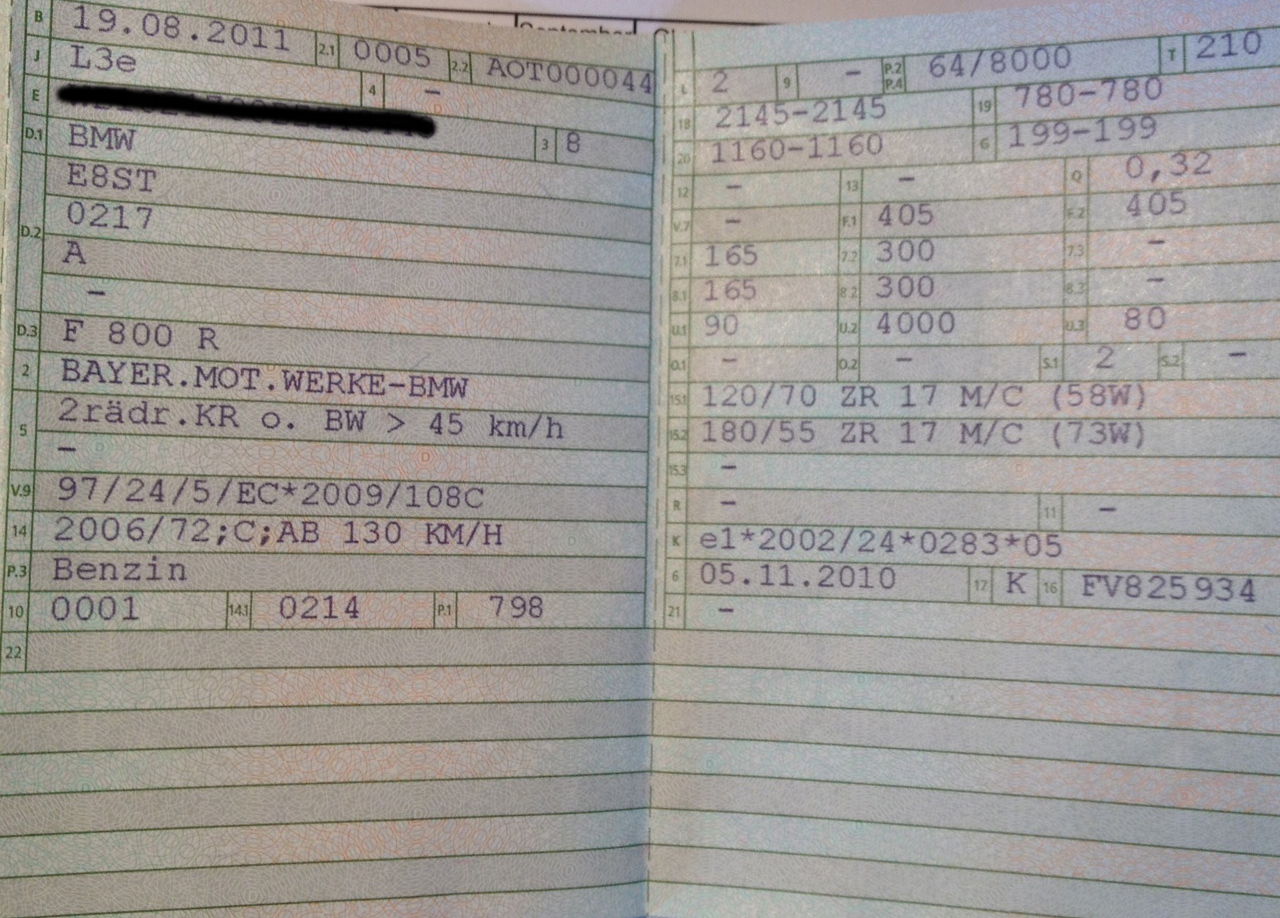 September
B 19.08.2011 2.1 0005 2.2 AOT000044
J L3e 4 –
E
D.1 BMW 3 8
D.2 E8ST
0217
A
–
D.3 F 800 R
2 BAYER.MOT.WERKE-BMW
5 2rädr.KR o. BW > 45 km/h
–
V.9 97/24/5/EC*2009/108C
14 2006/72;C;AB 130 KM/H
P.3 Benzin
10 0001 14.1 0214 P.1 798
22
L 2 9 – P.2 P.4 64/8000 T 210
18 2145-2145 19 780-780
20 1160-1160 G 199-199
12 – 13 – Q 0,32
V.7 – F.1 405 F.2 405
7.1 165 7.2 300 7.3 –
8.1 165 8.2 300 8.3 –
U.1 90 U.2 4000 U.3 80
O.1 – O.2 – S.1 2 S.2 –
15.1 120/70 ZR 17 M/C (58W)
15.2 180/55 ZR 17 M/C (73W)
15.3 –
R – 11 –
K e1*2002/24*0283*05
6 05.11.2010 17 K 16 FV825934
21 –